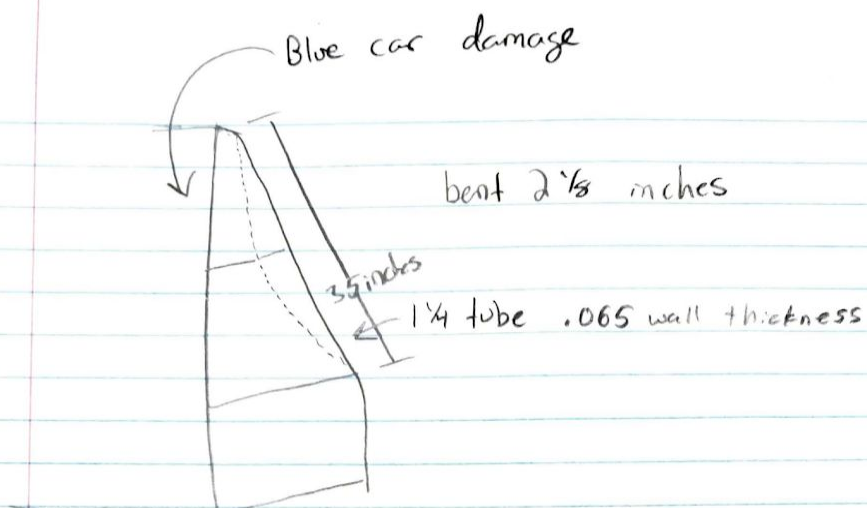 Blue car damage
bent 2 1/8 inches
35 inches
1 1/4 tube .065 wall thickness